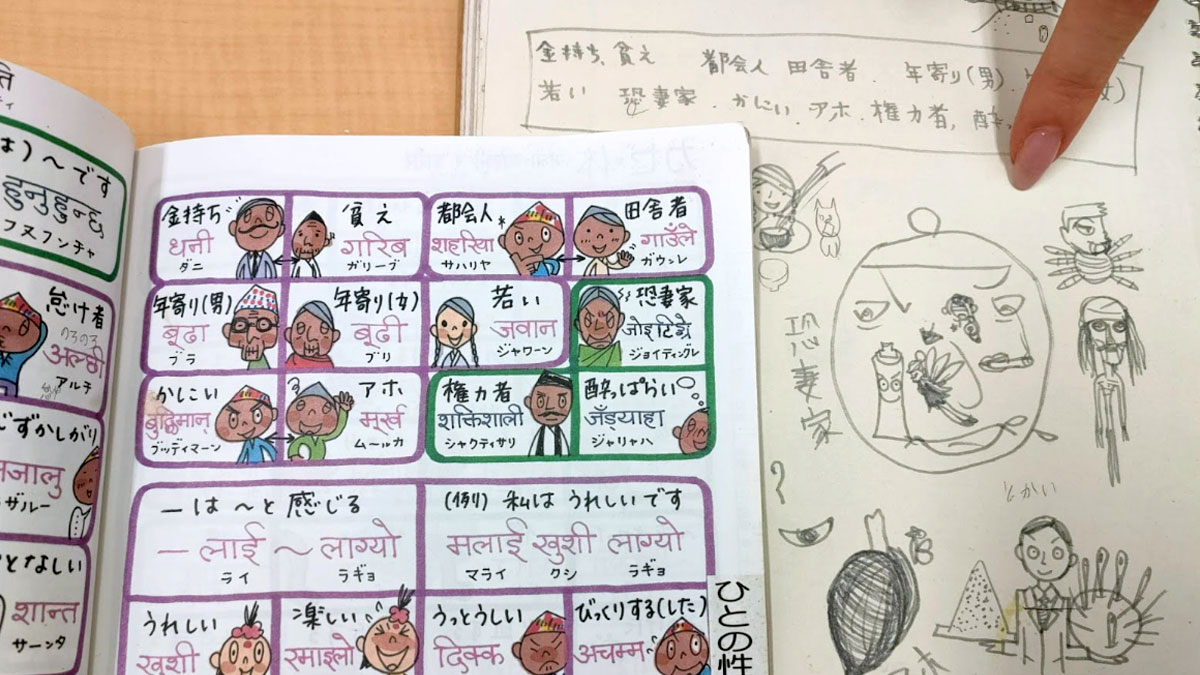 は)〜です
हुनुहुन्छ
フヌフンチャ
怠け者
のろのろ
अल्छी
アルチ
ずかしがり
जालु
ザルー
となしい
शान्त
サーンタ
金持ち
धनी
ダニ
貧え
गरिब
ガリーブ
都会人
शहरिया
サハリヤ
田舎者
गाउँले
ガウンレ
年寄り(男)
बूढा
ブラ
年寄り(女)
बूढी
ブリ
若い
जवान
ジャワーン
恐妻家
जोइटिङ्ग्रे
ジョイティングレ
かしこい
बुद्धिमान्
ブッディマーン
アホ
मूर्ख
ムールカ
権力者
शक्तिशाली
シャクティサリ
酔っぱらい
जँड्याहा
ジャリャハ
一は〜と感じる
一 लाई 〜 लाग्यो
ライ ラギョ
(例) 私は うれしいです
मलाई खुशी लाग्यो
マライ クシ ラギョ
うれしい
खुशी
楽しい
रमाइलो
うっとうしい
दिक्क
びっくりする(した)
अचम्म
ひとの性
金持ち、貧え 都会人 田舎者、年寄り(男)
若い 恐妻家、かにい、アホ、権力者、酔
恐妻家
?